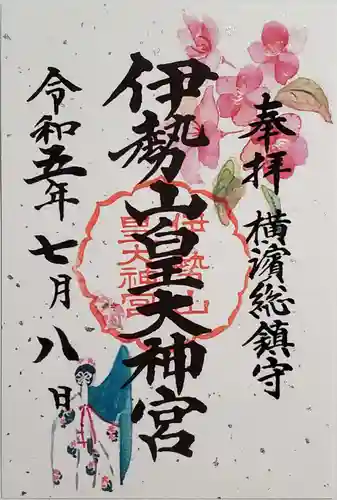 奉拝
横濱総鎮守
伊勢山皇大神宮
伊勢山
皇大神宮
令和五年七月八日